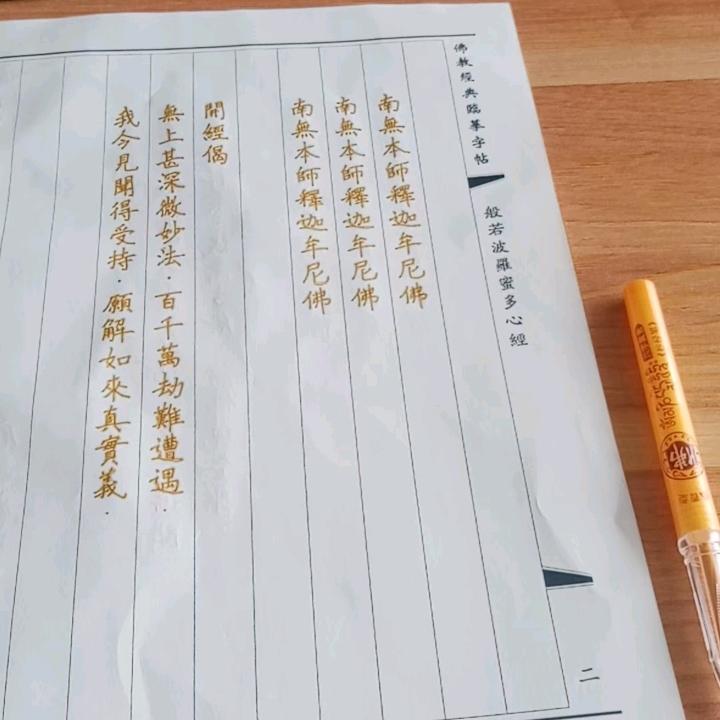 佛教經典臨摹字帖
般若波羅蜜多心經
二
南無本師釋迦牟尼佛
南無本師釋迦牟尼佛
南無本師釋迦牟尼佛
開經偈
無上甚深微妙法.百千萬劫難遭遇.
我今見聞得受持.願解如來真實義.